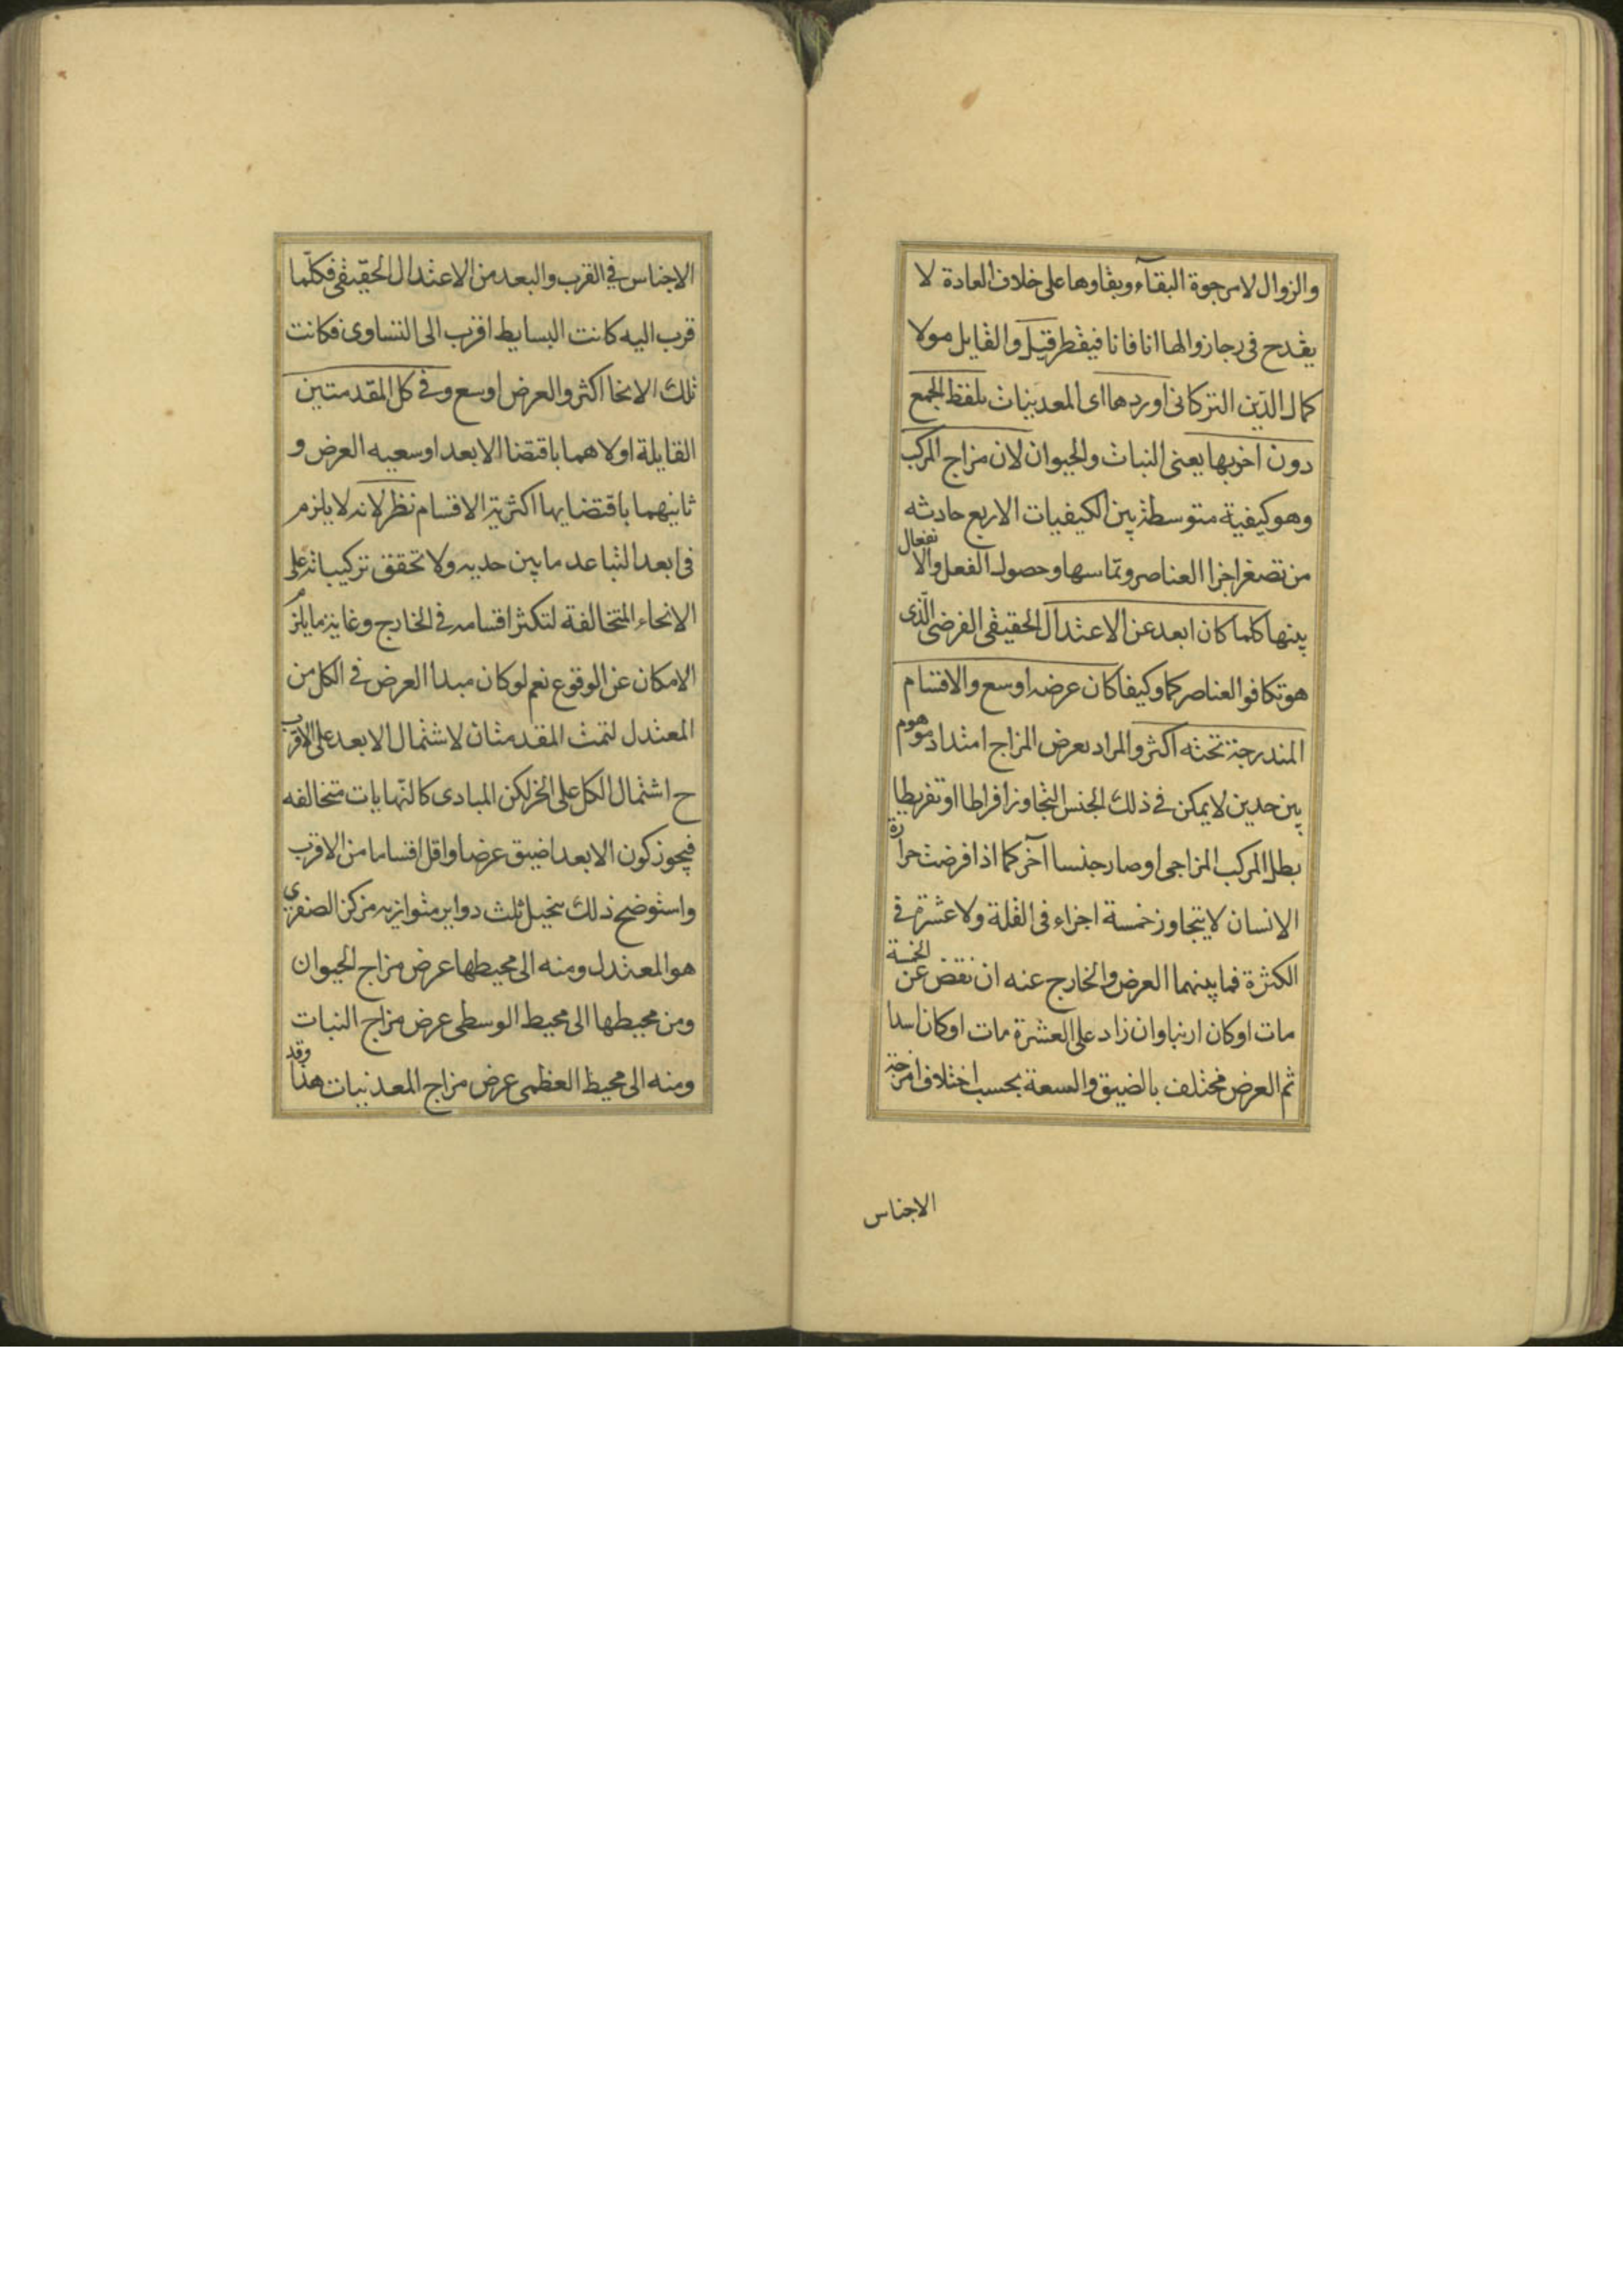 والزوال لا مرجوة البقآء وبقاوها على خلاف العادة لا
يقدح فى رجاء زوالها انا فانا فيفطر قيل والقايل مولا
كمال الدّين التركانى اوردها اى المعدنيات بلفظ الجمع
دون اخويها يعنى النبات والحيوان لان مزاج المركب
وهو كيفية متوسطة بين الكيفيات الاربع حادثه
من تصغر اجزا العناصر وتماسها وحصول الفعل والانفعال
بينها كلما كان ابعد عن الاعتدال الحقيقى الفرضى الّذى
هو تكافو العناصر كما وكيفا كان عرضه اوسع والاقسام
المندرجة تحته اكثر والمراد بعرض المزاج امتداد موهوم
بين حدين لا يمكن في ذلك الجنس التجاوز افراطا او تفريطا
بطل المركب المزاجى او صار جنسا آخر كما اذا فرضت حرارة
الانسان لا يتجاوز خمسة اجزاء فى القلة ولا عشرة في
الكثرة فما بينهما العرض والخارج عنه ان نقص عن الخمسة
مات او كان ارنبا وان زاد على العشرة مات او كان اسدا
ثم العرض مختلف بالضيق والسعة بحسب اختلاف امزجة
الاجناس
الاجناس في القرب والبعد من الاعتدال الحقيقى فكلّما
قرب اليه كانت البسايط اقرب الى التساوى فكانت
تلك الانحا اكثر والعرض اوسع وفي كل المقدمتين
القايلة اولاهما باقتضا الابعد اوسعيه العرض و
ثانيهما باقتضايها اكثرية الاقسام نظر لانه لا يلزم
فى ابعد التباعد ما بين حديه ولا تحقق تركيباته على
الانحاء المتخالفة لتكثر اقسامه في الخارج وغاية ما يلزم
الامكان عن الوقوع نعم لو كان مبدا العرض في الكل من
المعتدل لتمت المقدمتان لاشتمال الابعد على الاقرب
ح اشتمال الكل على الجز لكن المبادى كالنّهايات متخالفه
فيجوز كون الابعد اضيق عرضا واقل اقساما من الاقرب
واستوضح ذلك بتخيل ثلث دواير متوازيه مركز الصغرى
هو المعتدل ومنه الى محيطها عرض مزاج الحيوان
ومن محيطها الى محيط الوسطى عرض مزاج النبات
ومنه الى محيط العظمى عرض مزاج المعدنيات هذا وقد